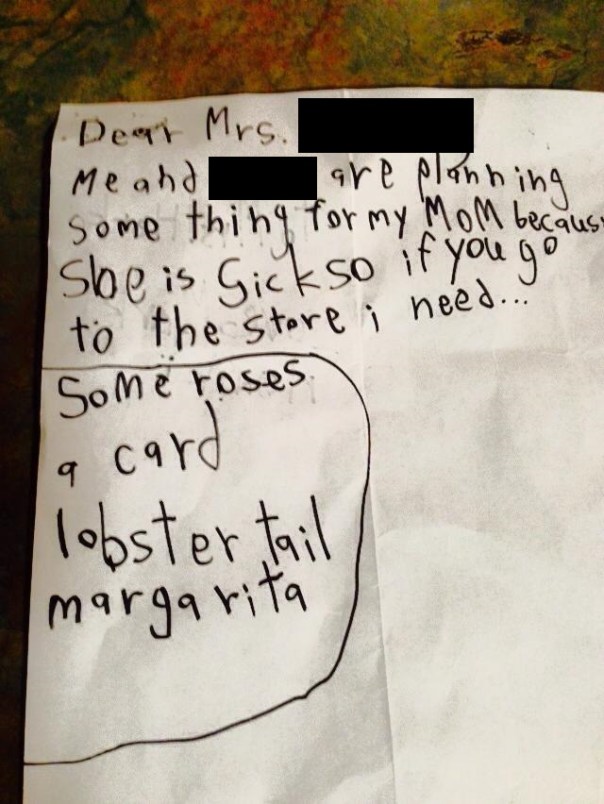 Dear Mrs.
Me and are planning
some thing for my MoM becaus
She is Sick so if you go
to the store i need...
Some roses
a card
lobster tail
margarita